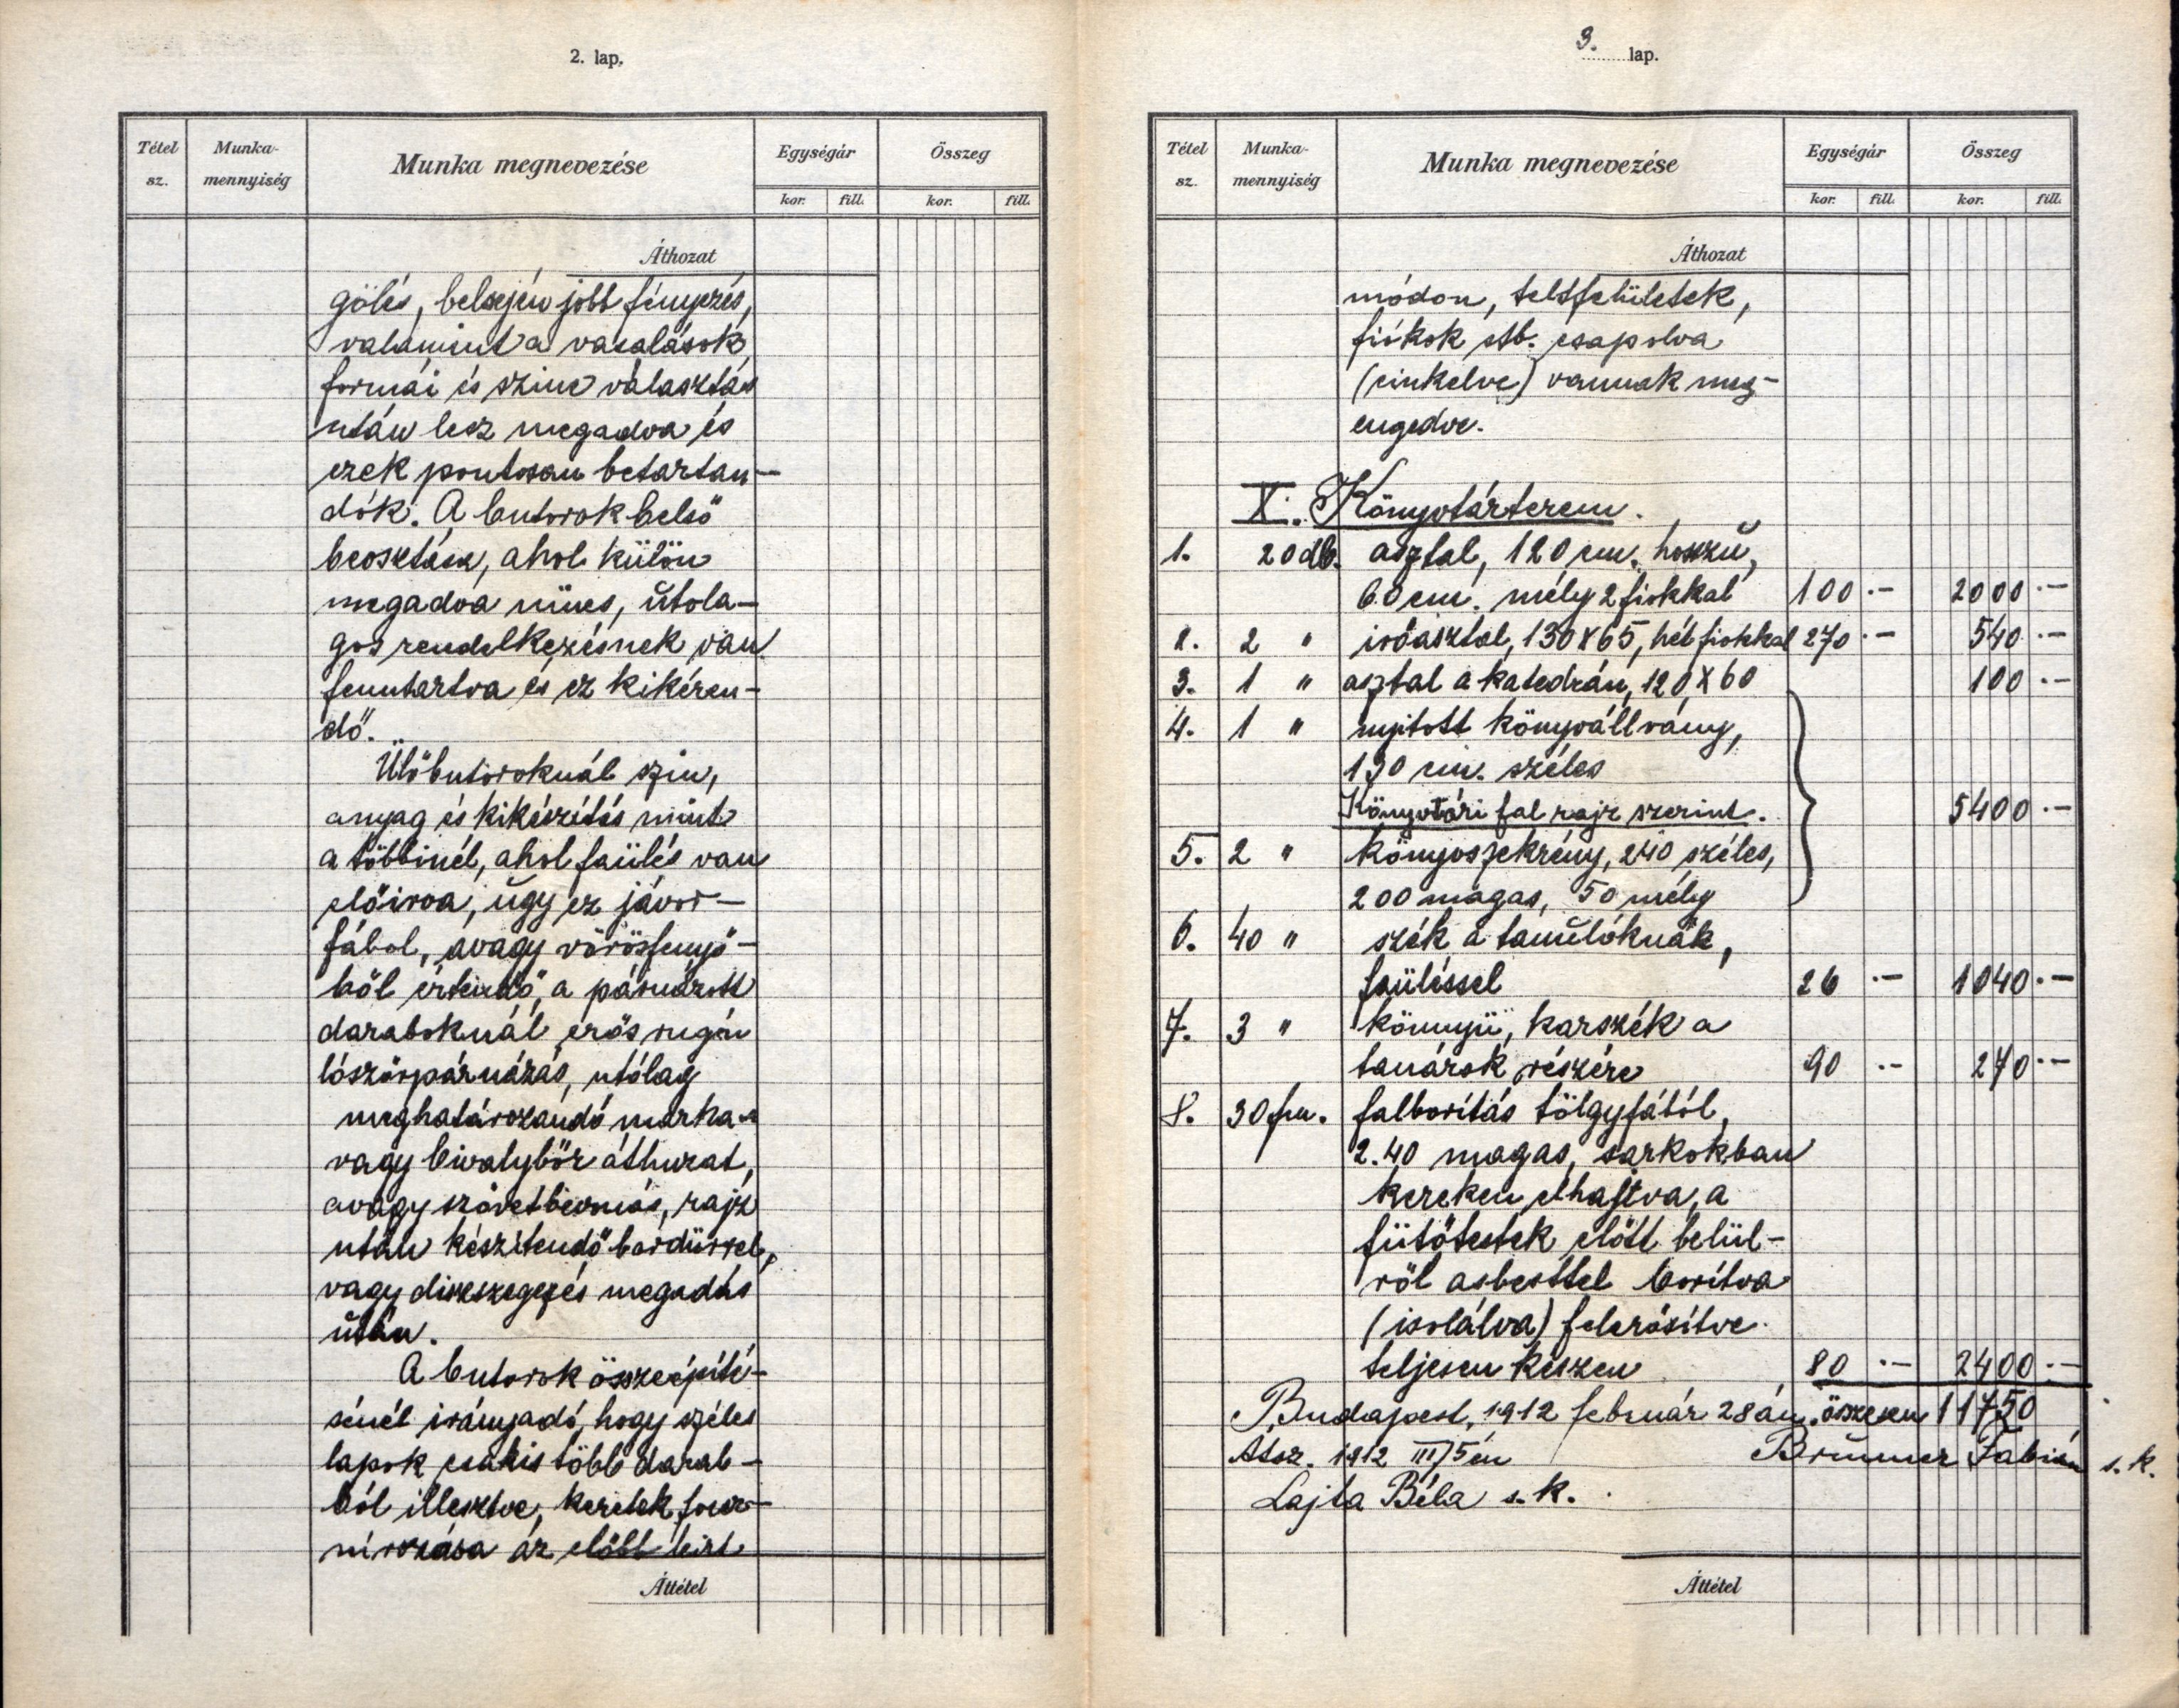 2. lap.
Tétel sz. Munka-mennyiség Munka megnevezése Egységár Összeg
kor. fill. kor. fill.
Áthozat
gölés, belsején jobb fényezés,
valamint a vasalások
formái és szine választás
után lesz megadva és
ezek pontosan betartan-
dók. A butorok belső
beosztása, ahol külön
megadva nincs, útola-
gos rendelkezésnek van
fenntartva és ez kikéren-
dő.
Ülőbutoroknál szin,
anyag és kikészítés mint
a többinél, ahol faülés van
előirva, úgy ez jávor-
fából, avagy vörösfenyő-
ből értendő, a párnázott
daraboknál erős rugón
lószőrpárnázás, utólag
meghatározandó marha-
vagy bivalybőr áthuzat,
avagy szövetbevonás, rajz
után készítendő bordürrel,
vagy diszszegezés megadás
után.
A butorok összeépíté-
sénél irányadó, hogy széles
lapok csakis több darab-
ból illesztve, keretek four-
nirozása az előbb leirt
Áttétel
3. lap.
Tétel sz. Munka-mennyiség Munka megnevezése Egységár Összeg
kor. fill. kor. fill.
Áthozat
módon, teltfelületek,
fiókok stb. csapolva
(cinkelve) vannak meg-
engedve.
X. Könyvtárterem.
1. 20 db. asztal, 120 cm. hosszú,
60 cm. mély 2 fiokkal 100 .— 2000 .—
2. 2 " iróasztal, 130 x 65, hét fiokkal 270 .— 540 .—
3. 1 " asztal a katedrán, 120 x 60 100 .—
4. 1 " nyitott könyvállvány,
190 cm. széles
Könyvtári fal rajz szerint. 5400 .—
5. 2 " könyvszekrény, 240 széles,
200 magas, 50 mély
6. 40 " szék a tanulóknak,
faüléssel 26 .— 1040 .—
7. 3 " könnyü, karszék a
tanárok részére 90 .— 270 .—
8. 30 fm. falborítás tölgyfából,
2.40 magas, sarkokban
kereken elhajtva, a
fütőtestek előtt belül-
ről asbesttel borítva
(isolálva) felerősítve
teljesen készen 80 .— 2400 .—
Budapest, 1912 február 28án. összesen 11750
Átsz. 1912 III/5én Brummer Fábián s. k.
Lajta Béla s. k.
Áttétel